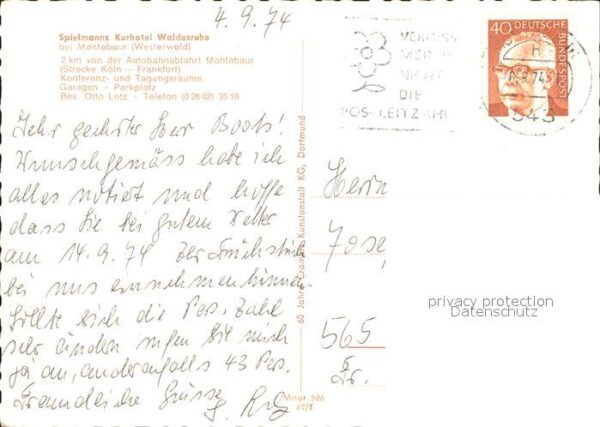 4.9.74
Spielmanns Kurhotel Waldesruhe
bei Montabaur (Westerwald)
2 km von der Autobahnabfahrt Montabaur
(Strecke Köln — Frankfurt)
Konferenz- und Tagungsräume
Garagen - Parkplatz
Bes. Otto Lotz - Telefon (0 26 02) 35 10
VERGISS
MEIN
NICHT
DIE
POSTLEITZAHL
40 DEUTSCHE
BUNDESPOST
543
Sehr geehrter Herr Boots!
Wunschgemäss habe ich
alles notiert und hoffe
dass Sie bei gutem Wetter
am 14.9.74 Frühstück
bei uns einnehmen können
Sollte sich die Pers. Zahl
sehr ändern rufen Sie mich
ja an, anderenfalls 43 Pers.
Freundliche Grüsse
60 Jahre Cramers Kunstanstalt KG, Dortmund
Herrn
Jose,
565
Mour 506
privacy protection
Datenschutz